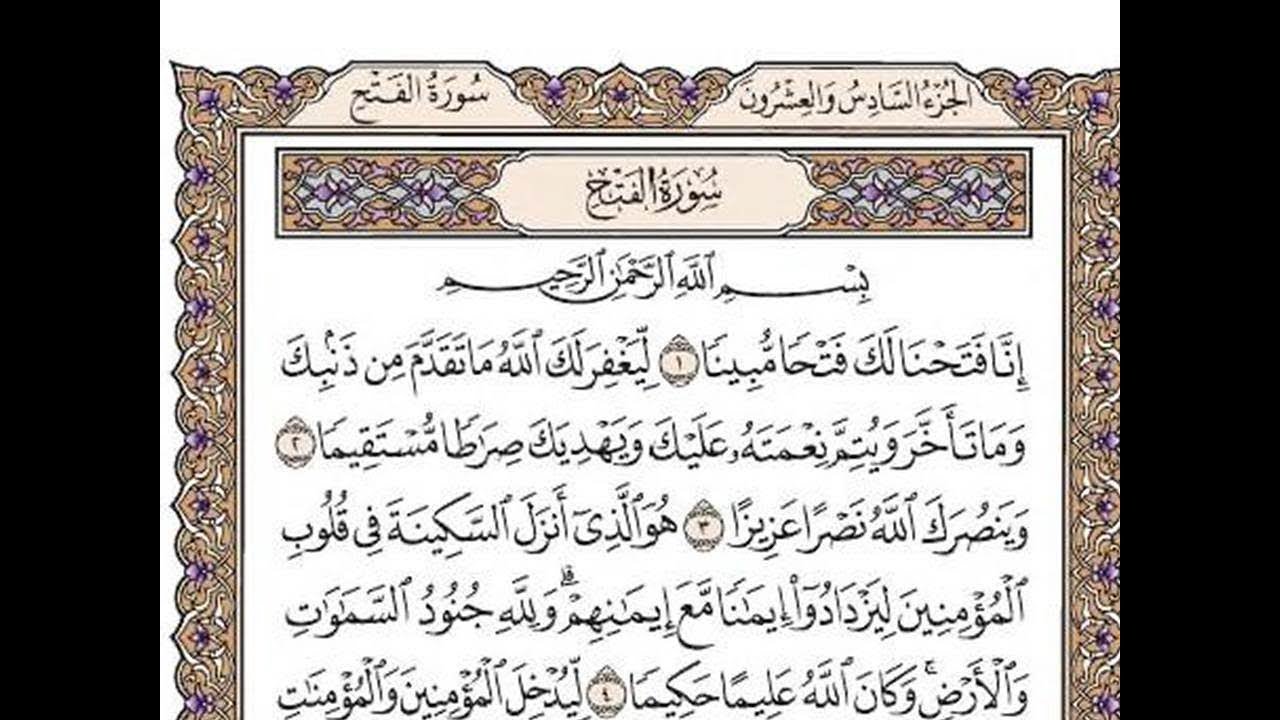 الجُزْءُ السَّادِسُ وَالعِشْرُونَ
سُورَةُ الفَتْح
سُورَةُ الفَتْحِ
بِسْمِ ٱللَّهِ ٱلرَّحْمَٰنِ ٱلرَّحِيمِ
إِنَّا فَتَحْنَا لَكَ فَتْحًا مُّبِينًا ١ لِّيَغْفِرَ لَكَ ٱللَّهُ مَا تَقَدَّمَ مِن ذَنۢبِكَ
وَمَا تَأَخَّرَ وَيُتِمَّ نِعْمَتَهُۥ عَلَيْكَ وَيَهْدِيَكَ صِرَٰطًا مُّسْتَقِيمًا ٢
وَيَنصُرَكَ ٱللَّهُ نَصْرًا عَزِيزًا ٣ هُوَ ٱلَّذِىٓ أَنزَلَ ٱلسَّكِينَةَ فِى قُلُوبِ
ٱلْمُؤْمِنِينَ لِيَزْدَادُوٓا۟ إِيمَٰنًا مَّعَ إِيمَٰنِهِمْ ۗ وَلِلَّهِ جُنُودُ ٱلسَّمَٰوَٰتِ
وَٱلْأَرْضِ ۚ وَكَانَ ٱللَّهُ عَلِيمًا حَكِيمًا ٤ لِّيُدْخِلَ ٱلْمُؤْمِنِينَ وَٱلْمُؤْمِنَٰتِ